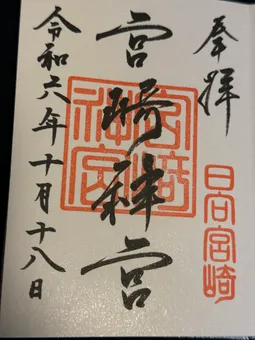 奉拝
日向宮崎
宮崎神宮
宮崎
神宮
令和六年十月十八日